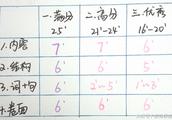 一.满分 二.高分 三.优秀
25' 21'-24' 16'-20'
1.内容 7' 7' 6'
2.结构 6' 6' 5'
3.词+句 6' 2'-5' 1'-3'
4.卷面 6' 6' 6'